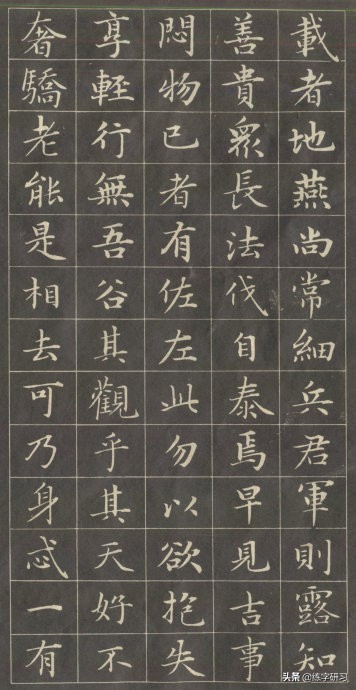 載者地燕尚常細兵君軍則露知
善貴眾長法伐自泰焉早見吉事
悶物已者有佐左此勿以欲抱失
享輕行無吾谷其觀乎其天好不
奢驕老能是相去可乃身忒一有
头条@练字研习